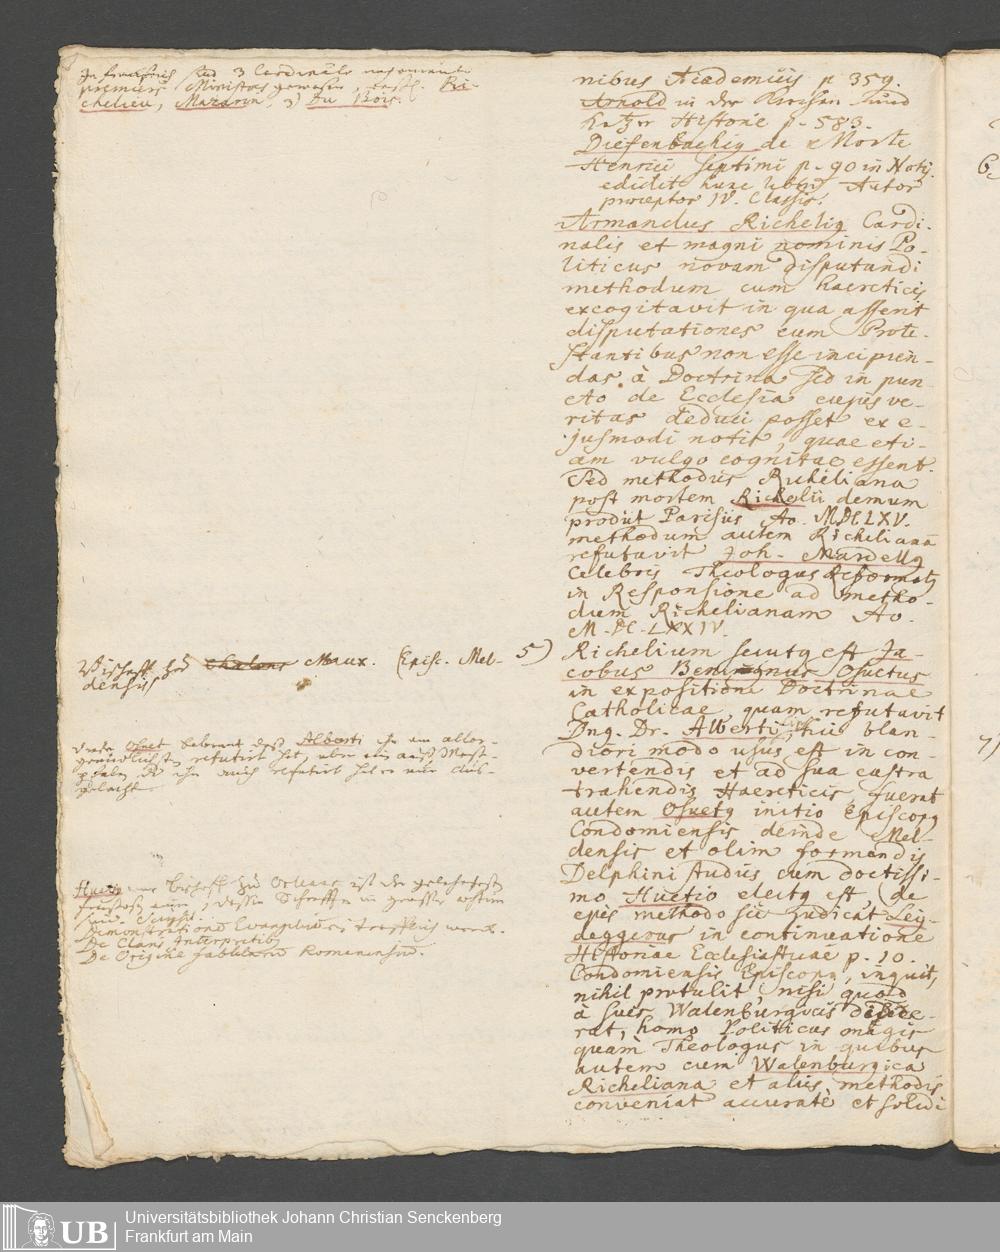 In Frankreich sind 3 Cardinäle nach einander
premiers Ministres gewesen, erstl. Ri-
chelieu, Mazarin, 3) Du Bois.
nibus Academicis p. 359.
Arnold in der Kirchen und
Ketzer Historie p. 583.
Diefenbachig de Morte
Henrici Septimi p. 90 in Notis.
edidit hunc Autor
praeceptor IV. Classis.
Armandus Richelig Cardi-
nalis et magni nominis Po-
liticus novam disputandi
methodum cum haereticis
excogitavit in qua asserit
disputationes cum Prote-
stantibus non esse incipien-
das à Doctrina sed in pun-
cto de Ecclesia cujus ve-
ritas deduci posset ex e-
jusmodi notis, quae eti-
am vulgo cognitae essent.
Sed methodus Richeliana
post mortem Richelii demum
prodiit Parisiis Ao. MDCLXV.
methodum autem Richelianã
refutavit Joh. Martellg
Celebris Theologus Reformatg
in Responsione ad metho-
dum Richelianam Ao.
M.DC.LXXIV.
Bischoff zu Chalons Meaux. (Episc. Mel-
densis)
5) Richelium secutg est Ja-
cobus Benignus Osuetus
in expositione Doctrinae
Catholicae, quam refutavit
Dng. Dr. Alberti, hic blan-
diori modo usus est in con-
vertendis et ad sua castra
trahendis Haereticis, fuerat
autem Osuetg initio Episcopg
Condomiensis deinde Mel-
densis et olim formandis
Delphini studiis cum doctissi-
mo Huetio electg est, (de
ejus methodo sic judicat Hey-
deggerus in continuatione
Historiae Ecclesiasticae p. 10.
Condomiensis Episcopg, inquit,
nihil protulit, nisi quod
à suis Walenburgicis didice-
rat, homo Politicus magis
quam Theologus in quibus
autem cum Walenburgica
Richeliana et aliis methodis
conveniat accuratè et solidi
Osuet bekennt, daß Alberti ihn am aller-
gründlichsten refutirt hat, aber
ihn auch refutirt hat er nur aus-
gelacht.
Huetg war Bischoff zu Orleans ist der gelehrteste
Frantzoß, dessen Schrifften in grosser
sind.
Demonstrationes Evangelicae
De Claris Interpretibg
De Origine fabularum Romanensium.
6)
7)
UB
Universitätsbibliothek Johann Christian Senckenberg
Frankfurt am Main